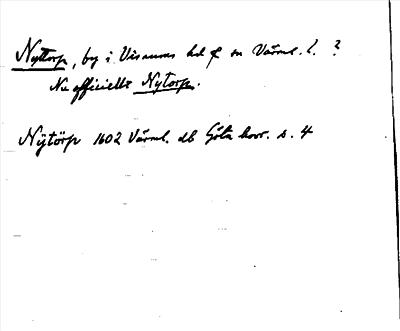 Nyttorp, by i Visnums hd f sn Värml. l. ?
Nu officiellt Nytorp.
Nÿtörp 1602 Värml. db Göta hovr. s. 4